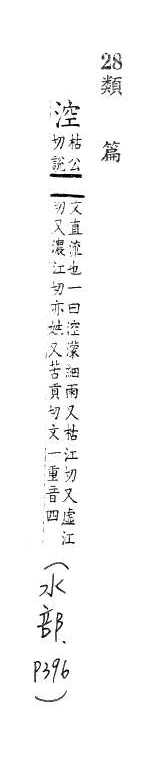 28類篇
涳枯公切說
文直流也一曰涳濛細雨又枯江切又虛江
切又濃江切亦姓又苦貢切文一重音四
(水部.P396)